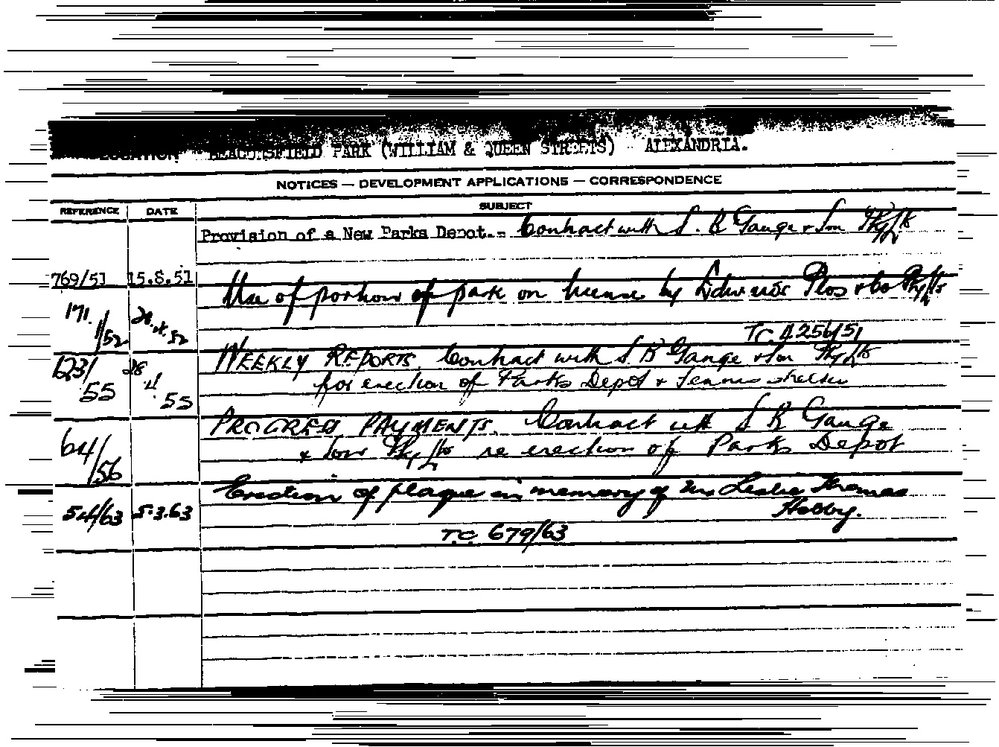 LOCATION BEACONSFIELD PARK (WILLIAM & QUEEN STREETS) ALEXANDRIA.
NOTICES — DEVELOPMENT APPLICATIONS — CORRESPONDENCE
REFERENCE DATE SUBJECT
Provision of a New Parks Depot. - Contract with S. B Gauge & Son Pty Ltd
769/51 15.8.51 Use of portion of park on license by Edwards & Co Pty Ltd
171/52 52
TC A256/51
123/55 28.4.55 WEEKLY REPORTS. Contract with S. B Gauge & Son Pty Ltd
for erection of Parks Depot & Tennis shelter
64/56 PROGRESS PAYMENTS. Contract with S B Gauge
& Son Pty Ltd re erection of Parks Depot
54/63 5.3.63 Erection of plaque in memory of Mr Leslie Thomas
Hebby.
T.C. 679/63